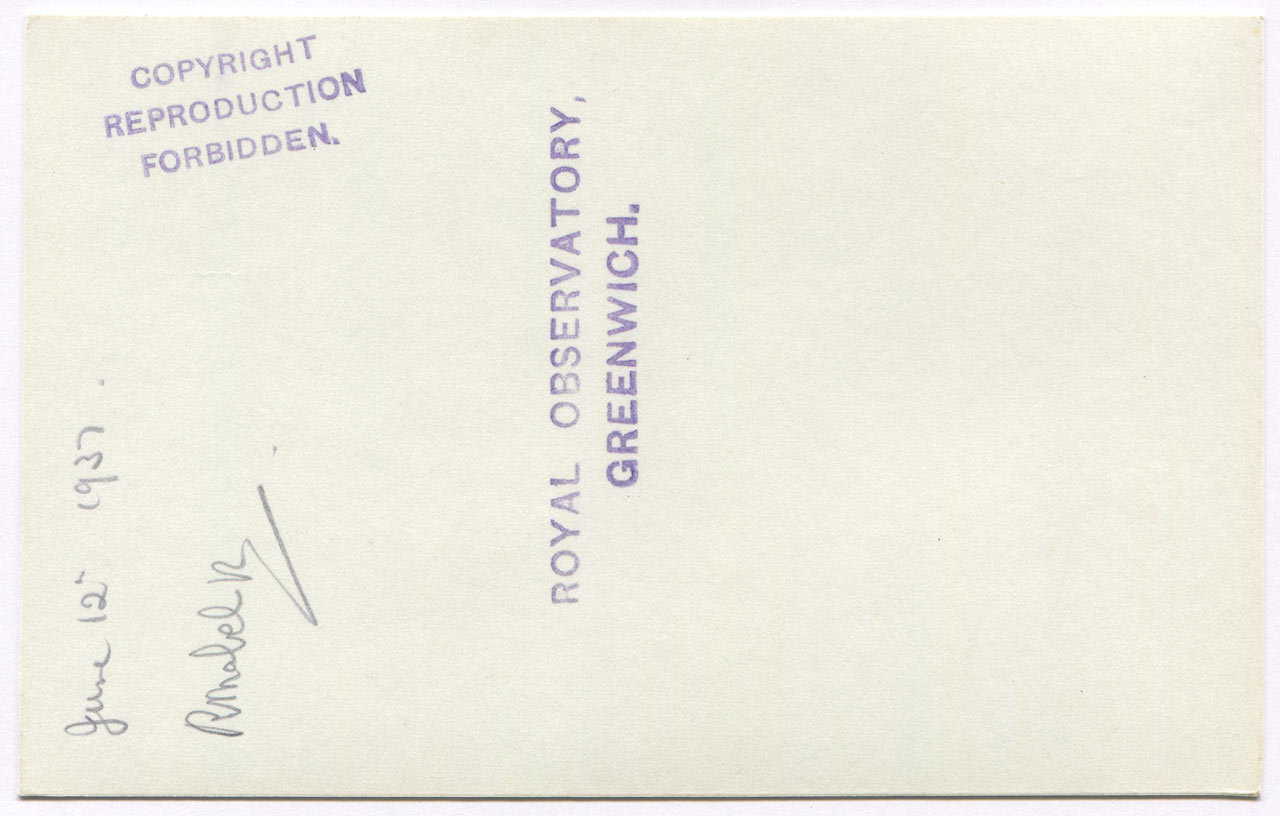 COPYRIGHT
REPRODUCTION
FORBIDDEN.
June 12 1937.
ROYAL OBSERVATORY,
GREENWICH.